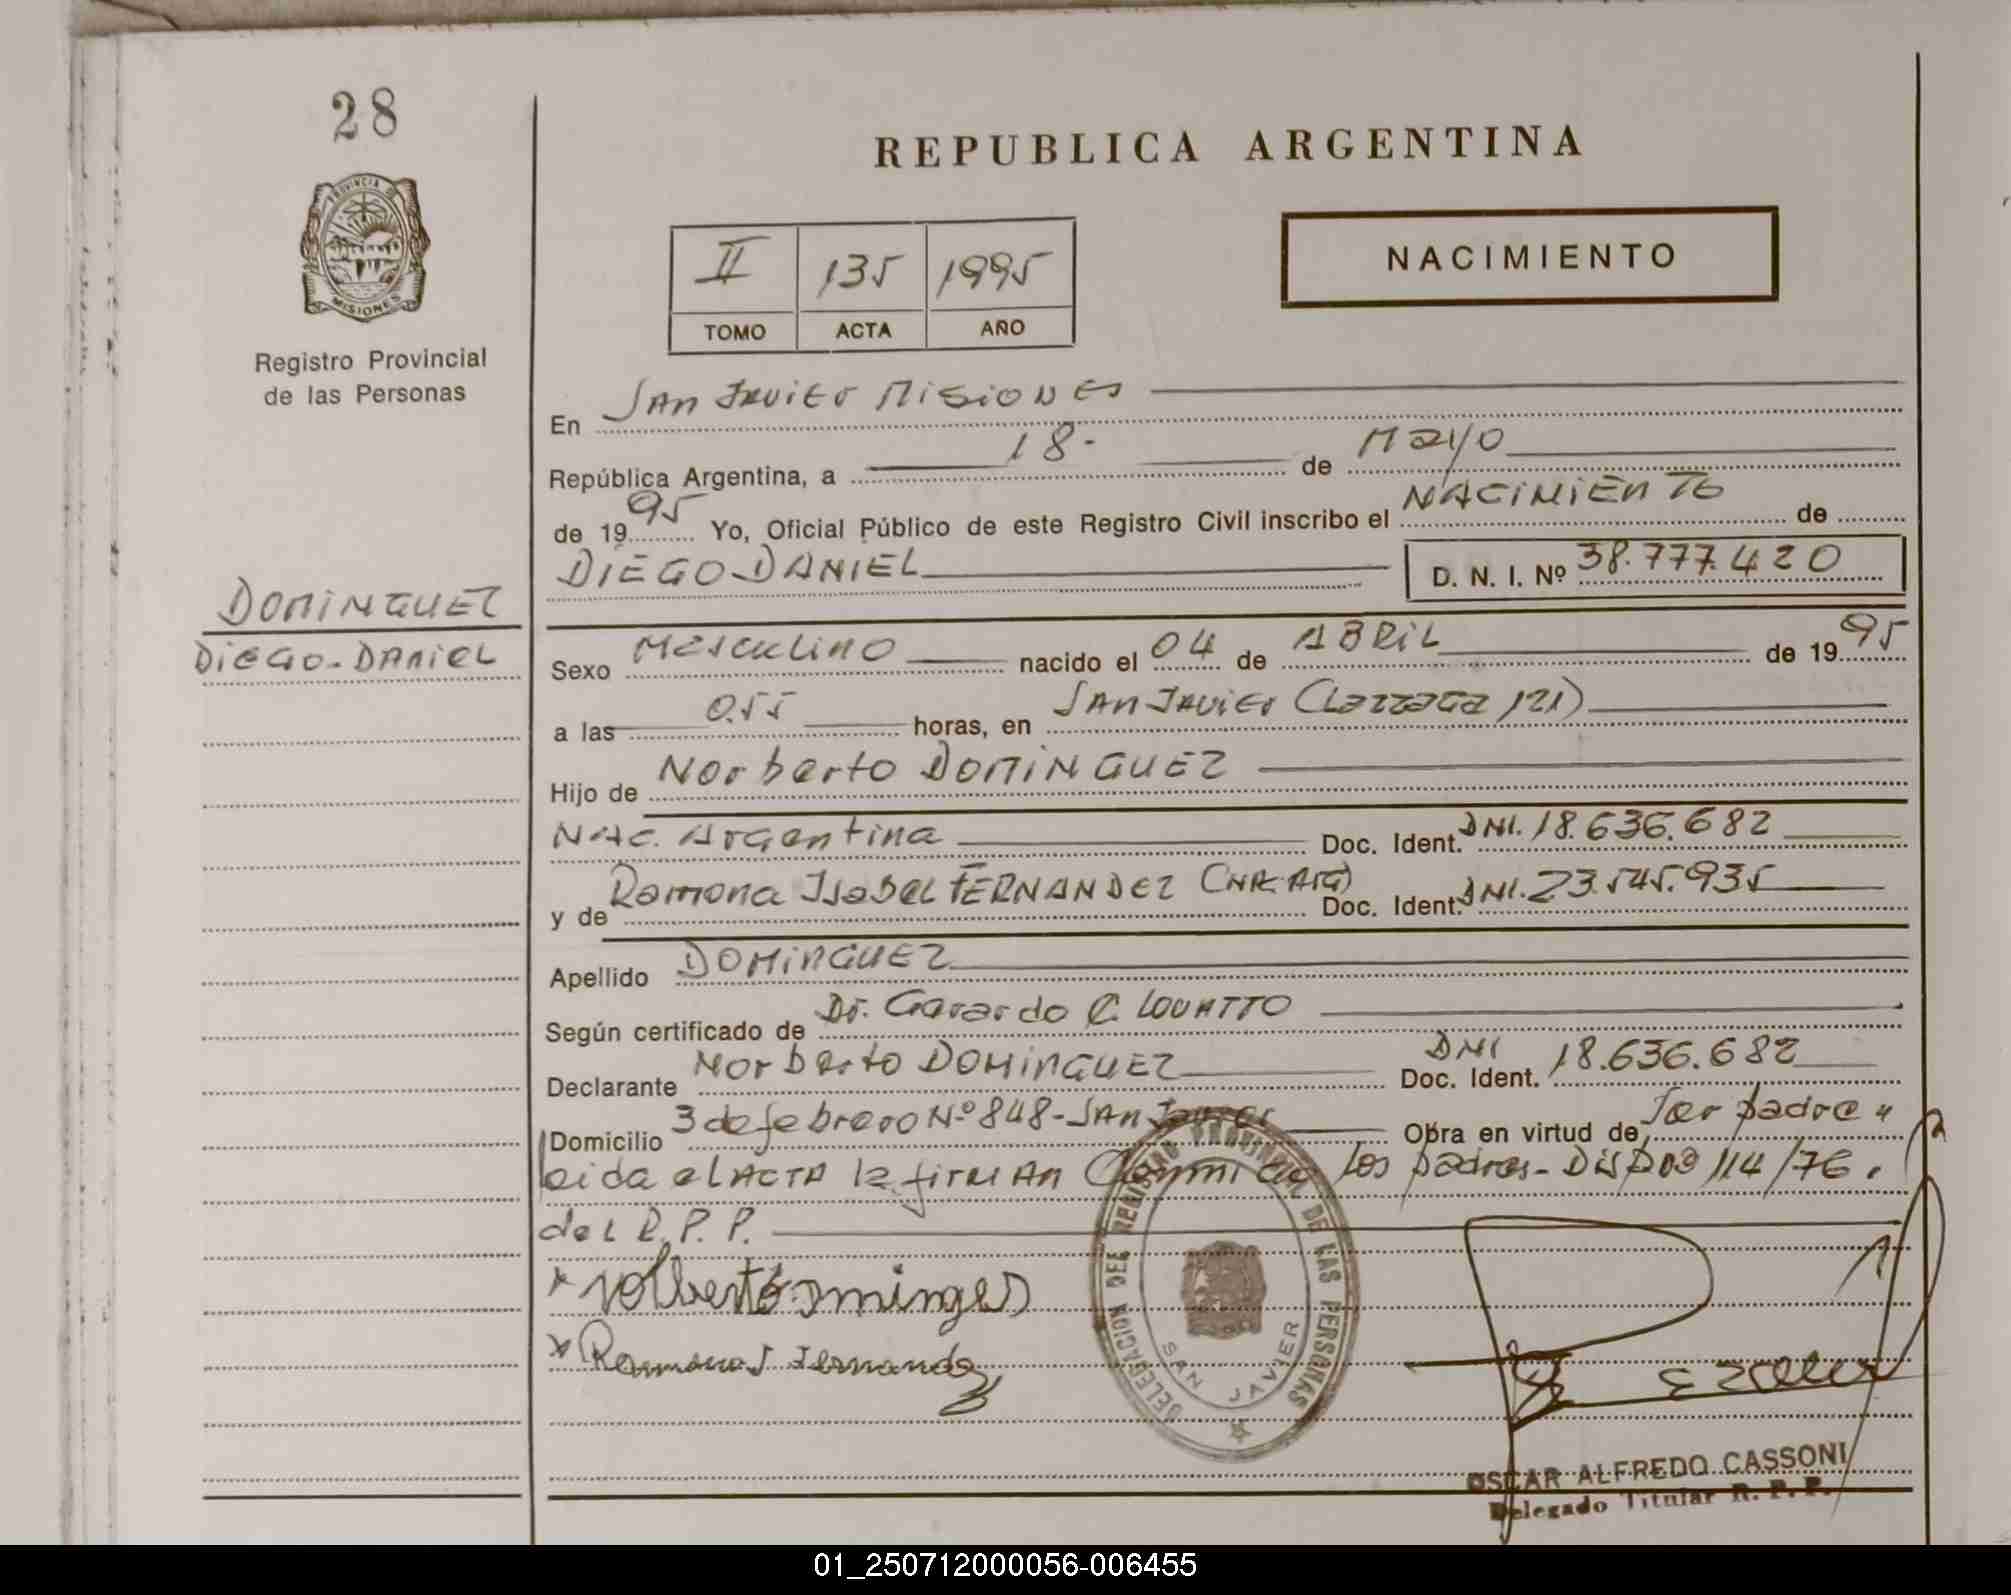 28
PROVINCIA DE
MISIONES
Registro Provincial
de las Personas
DOMINGUEZ
DIEGO-DANIEL
REPUBLICA ARGENTINA
II 135 1995
TOMO ACTA AÑO
NACIMIENTO
En SAN JAVIER MISIONES
República Argentina, a 18- de MAYO
de 1995 Yo, Oficial Público de este Registro Civil inscribo el NACIMIENTO de
DIEGO-DANIEL D. N. I. Nº 38.777.420
Sexo MASCULINO nacido el 04 de ABRIL de 1995
a las 0.55 horas, en SAN JAVIER (Lazzaga 121)
Hijo de Norberto DOMINGUEZ
NAC. Argentina Doc. Ident. DNI. 18.636.682
y de Ramona Isabel FERNANDEZ (NAC. ARG) Doc. Ident. DNI. 23.545.935
Apellido DOMINGUEZ
Según certificado de Dr. Gerardo C. LOVATTO
Declarante Norberto DOMINGUEZ Doc. Ident. DNI 18.636.682
Domicilio 3 de febrero Nº 848-SAN Javier Obra en virtud de Ser padre y
leida el ACTA la firman Conmigo los padres- DISPOS 114/76.
del R.P.P.
x Nolberto Dominges
x Ramona I Fernandez
DELEGACION DEL REGISTRO PROVINCIAL DE LAS PERSONAS
SAN JAVIER
OSCAR ALFREDO CASSONI
Delegado Titular R. P. P.
01_250712000056-006455